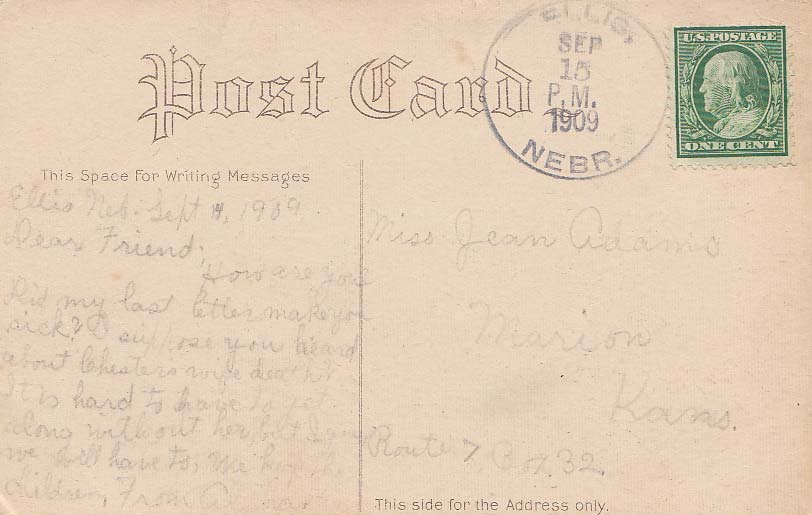 Post Card
ELLIS,
SEP
15
P.M.
1909
NEBR.
U.S. POSTAGE
ONE CENT
This Space For Writing Messages
Ellis Neb. Sept 1909
Dear Friend;
How are you
Did my last letter make you
sick? I suppose you heard
about Chesters wife death?
It is hard to have to get
along without her, but I
we will have to. We
From
Miss Jean Adams
Marion
Kans.
Route 7 Box 32.
This side for the Address only.